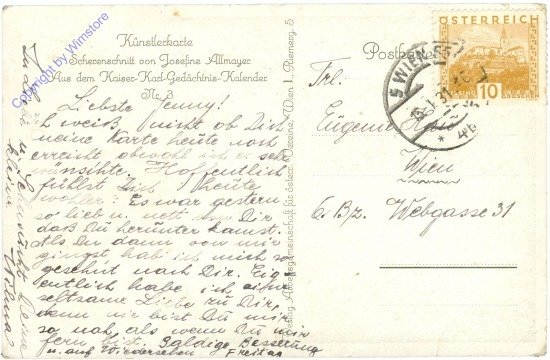 Künstlerkarte
Scherenschnitt von Josefine Allmayer
Aus dem Kaiser-Karl-Gedächtnis-Kalender
Nr. 3
Postkarte
ÖSTERREICH
10
GROSCHEN
5 WIEN
Copyright by Wimstore
Liebste Jenny!
Ich weiß nicht ob Dich
meine Karte heute noch
erreicht obwohl ich es sehr
wünschte. Hoffentlich
fühlst Dich heute
wohler? Es war gestern
so lieb u. nett von Dir
daß Du herunter kamst.
Als Du dann von mir
gingst hab ich mich so
gesehnt nach Dir. Eig-
entlich habe ich eine
seltsame Liebe zu Dir,
denn nie bist Du mir
so nah, als wenn Du mir
fern bist. Baldige Besserung
u. auf Wiedersehen Freitag
Frl.
Eugenie
Wien
6. Bz. Webgasse 31
Wien, I. Riemerg. 5